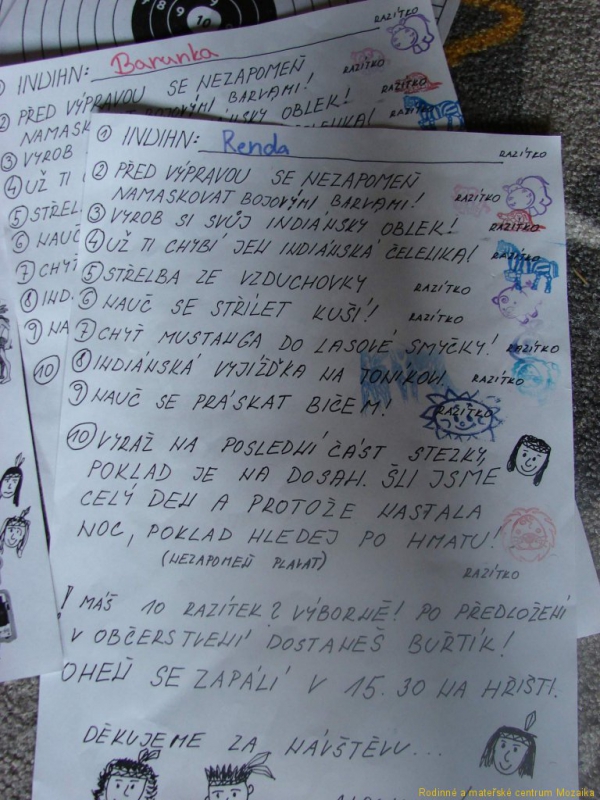 9 8 9
10
RAZÍTKO
① INDIHN: Barunka
RAZÍTKO
② PŘED VÝPRAVOU SE NEZAPOMEŇ
RAZÍTKO
NAMASK BOJOVÝMI BARVAMI!
③ VYROB
④ UŽ TI
⑤ STŘEL
⑥ NAUČ
⑦ CHYŤ
⑧ IND.
⑨ NA
⑩
① INDIHN: Renda RAZÍTKO
② PŘED VÝPRAVOU SE NEZAPOMEŇ
NAMASKOVAT BOJOVÝMI BARVAMI! RAZÍTKO
③ VYROB SI SVŮJ INDIÁNSKÝ OBLEK! RAZÍTKO
④ UŽ TI CHYBÍ JEN INDIÁNSKÁ ČELENKA! RAZÍTKO
⑤ STŘELBA ZE VZDUCHOVKY RAZÍTKO
⑥ NAUČ SE STŘÍLET KUŠÍ! RAZÍTKO
⑦ CHYŤ MUSTANGA DO LASOVÉ SMYČKY! RAZÍTKO
⑧ INDIÁNSKÁ VYJÍŽĎKA NA TONÍKOVI RAZÍTKO
⑨ NAUČ SE PRÁSKAT BIČEM! RAZÍTKO
⑩ VYRAŽ NA POSLEDNÍ ČÁST STEZKY,
POKLAD JE NA DOSAH. ŠLI JSME
CELÝ DEN A PROTOŽE NASTALA
NOC, POKLAD HLEDEJ PO HMATU!
(NEZAPOMEŇ PLAVAT)
RAZÍTKO
! MÁŠ 10 RAZÍTEK? VÝBORNĚ! PO PŘEDLOŽENÍ
V OBČERSTVENÍ DOSTANEŠ BUŘTÍK!
OHEŇ SE ZAPÁLÍ V 15.30 NA HŘIŠTI.
DĚKUJEME ZA NÁVŠTĚVU...
Rodinné a mateřské centrum Mozaika